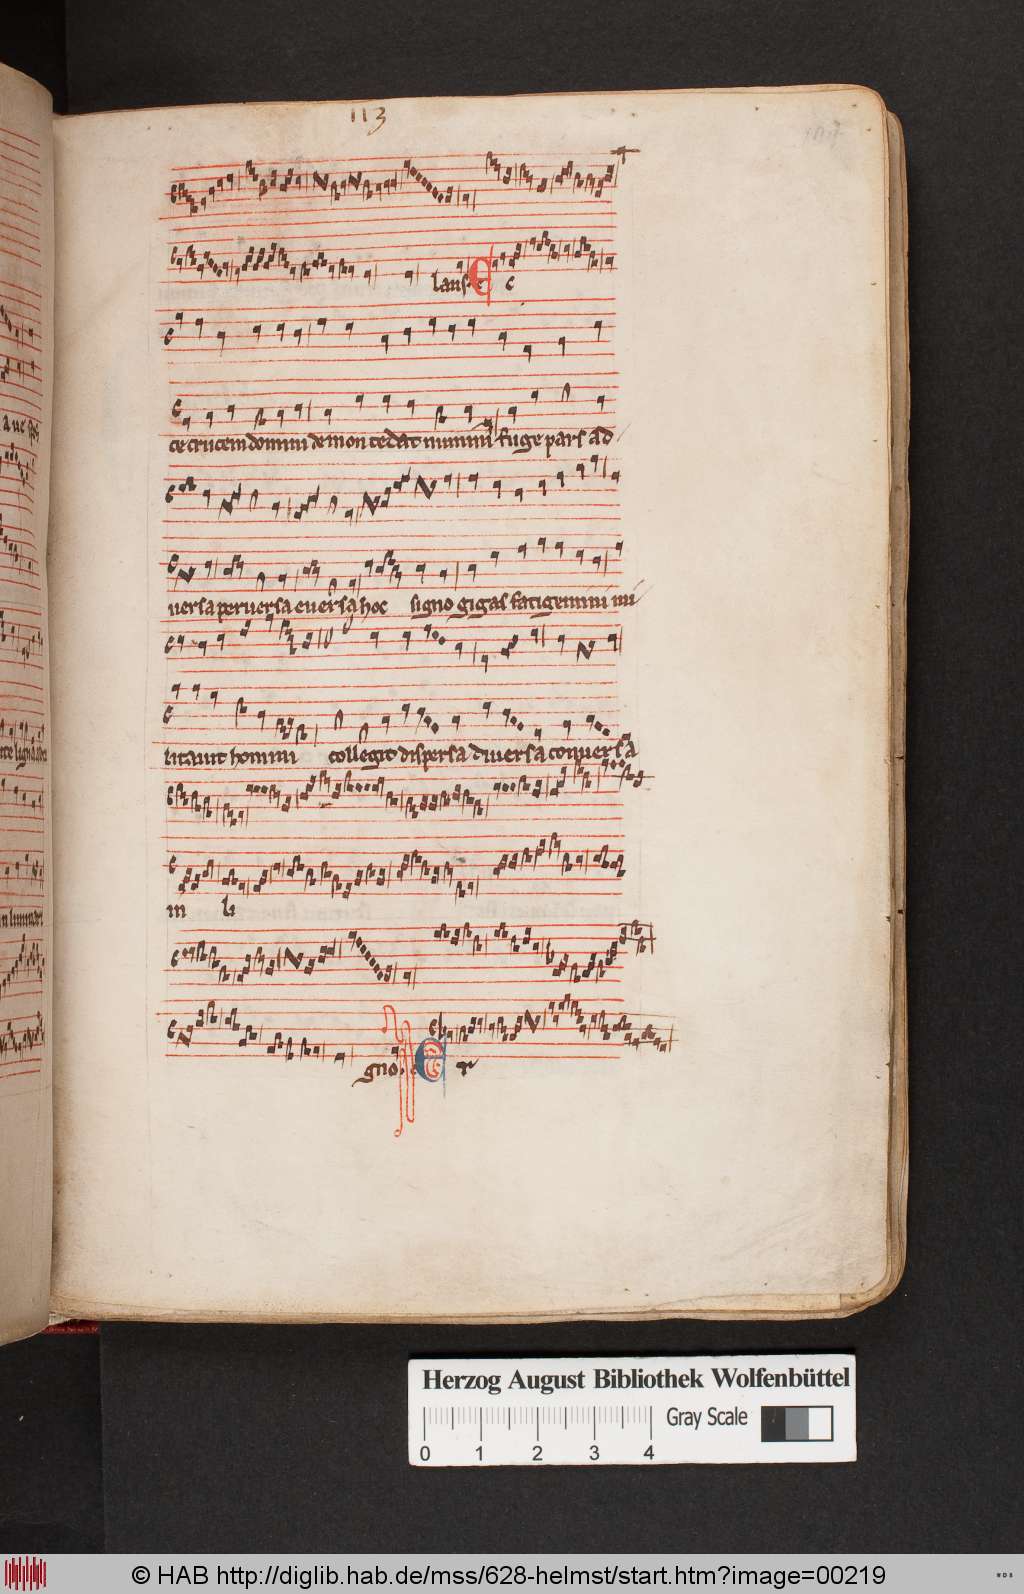 113
laus. E c
ce crucem domini demon tedat numini fuge pars ad
uersa peruersa euersa hoc signo gigas fatigemini mi
litauit homini collegit dispersa diuersa conuersa
in li
gno. E T
Herzog August Bibliothek Wolfenbüttel
0 1 2 3 4 Gray Scale
© HAB http://diglib.hab.de/mss/628-helmst/start.htm?image=00219